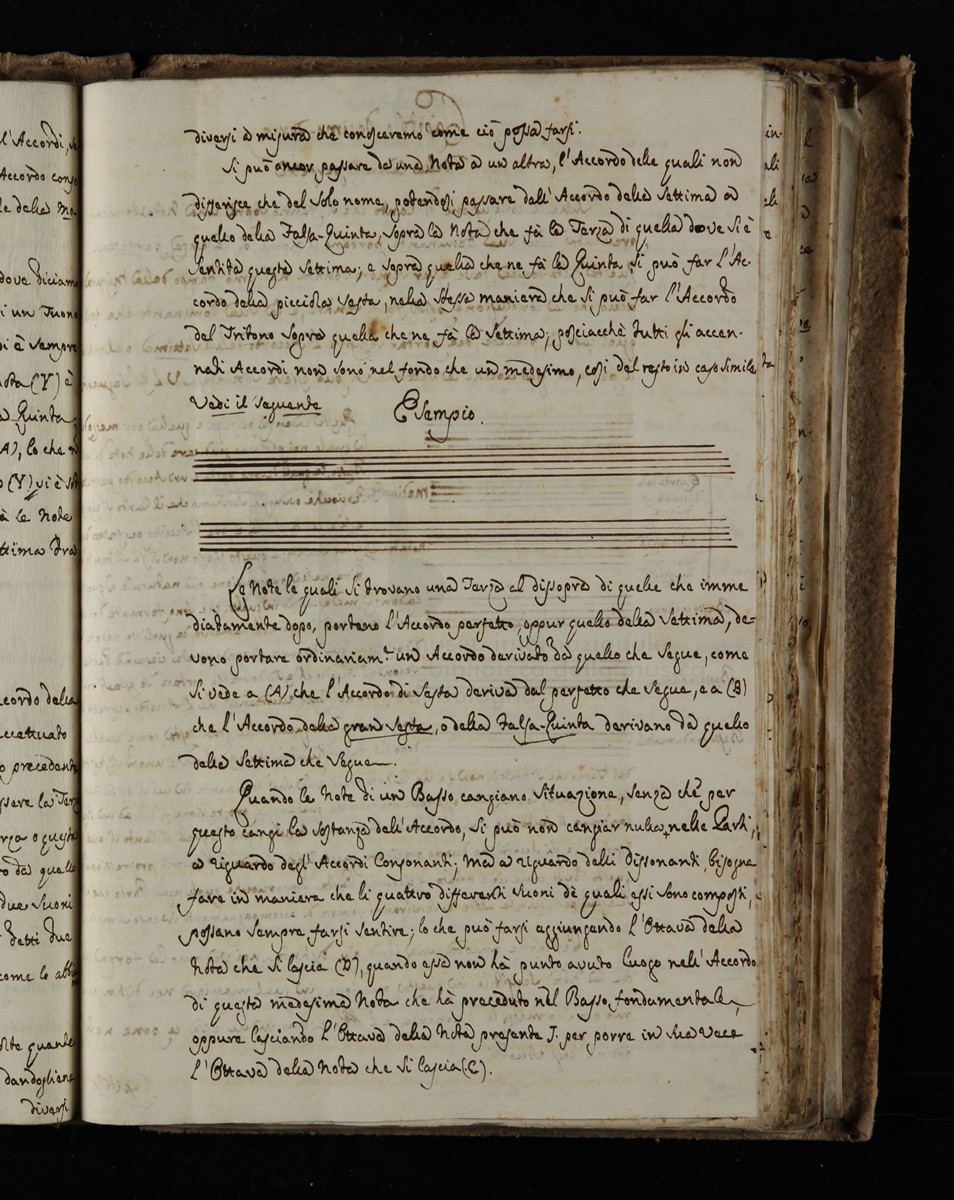 diversi a misura che conosceremo come ciò possa farsi.
Si può ancor passare da una Nota a un altra, l'Accordo delle quali non
differisce che del Solo nome, potendosi passare dall'Accordo della Settima a
quello della Falsa-Quinta, sopra la Nota che fà la Terza di quella dove si è
Sentita questa Settima; e sopra quella che ne fà la Quinta si può far l'Ac-
cordo della picciola Sesta, nella stessa maniera che si può far l'Accordo
del Tritono sopra quella che ne fà la Settima; posciacchè tutti gli accen-
nati Accordi non sono nel fondo che un medesimo, così del resto in caso simile
Vedi il Seguente Esempio.
Le Note le quali si trovano una Terza al dissopra di quelle che imme
diatamente dopo, portano l'Accordo perfetto, oppur quello della Settima, de-
vono portare ordinariam.te un Accordo derivato da quello che Segue, come
Si vede a (A) che l'Accordo di Sesta deriva dal perfetto che Segue, e a (B)
che l'Accordo della gran Sesta, o della Falsa-Quinta derivano da quello
della Settima che Segue.
Quando le Note di un Basso cangiano Situazione, senza che per
questo cangi la Sostanza dell'Accordo, si può non cangiar nulla nelle Parti,
a riguardo degl'Accordi Consonanti; Ma a riguardo delli Dissonanti, bisogna
fare in maniera che li quattro differenti Suoni de quali essi sono composti,
possano sempre farsi sentire; lo che può farsi aggiungendo l'Ottava della
Nota che si lascia (D), quando essa non hà punto avuto luogo nell'Accordo
di questa medesima Nota che hà preceduto nel Basso fondamentale,
oppure lasciando l'Ottava della Nota presente J. per porre in sua vece
l'Ottava della Nota che si lascia (C).